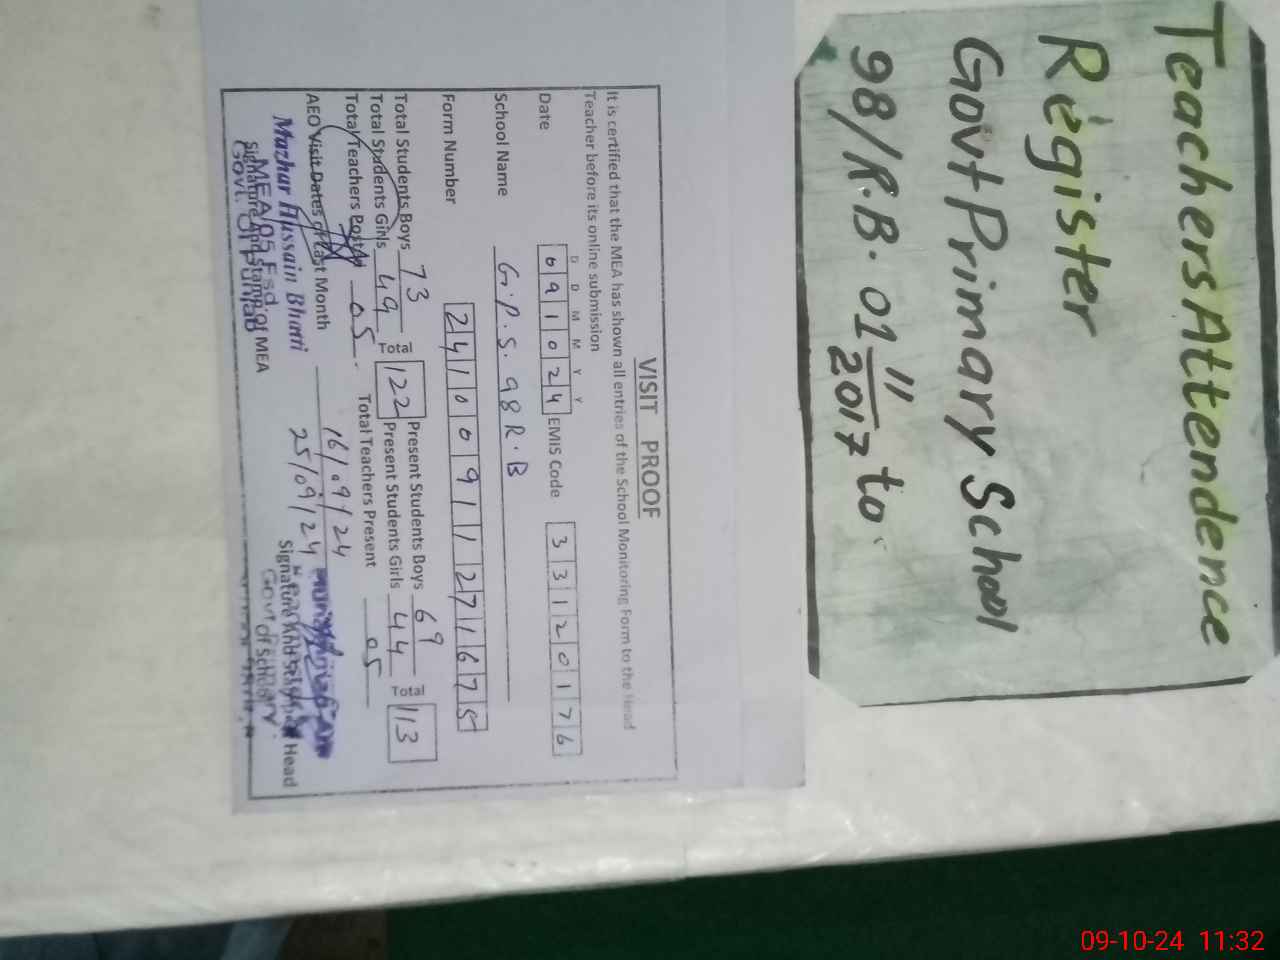 Teachers Attendence
Register
Govt Primary School
98/R.B. 01/11/2017 to
VISIT PROOF
It is certified that the MEA has shown all entries of the School Monitoring Form to the Head
Teacher before its online submission
D D M M Y Y
Date 091024 EMIS Code 33120176
School Name G.P.S. 98 R.B
Form Number 2410091127 1675
Total Students Boys 73 Total 122 Present Students Boys 69 Total 113
Total Students Girls 49 Present Students Girls 44
Total Teachers Posted 05 Total Teachers Present 05
AEO Visit Dates of Last Month 16/09/24
25/09/24
Mazhar Hussain Bhatti
MEA 05 Fsd
Signature and stamp of MEA
Govt. Of Punjab
Signature And Head
Govt
09-10-24 11:32